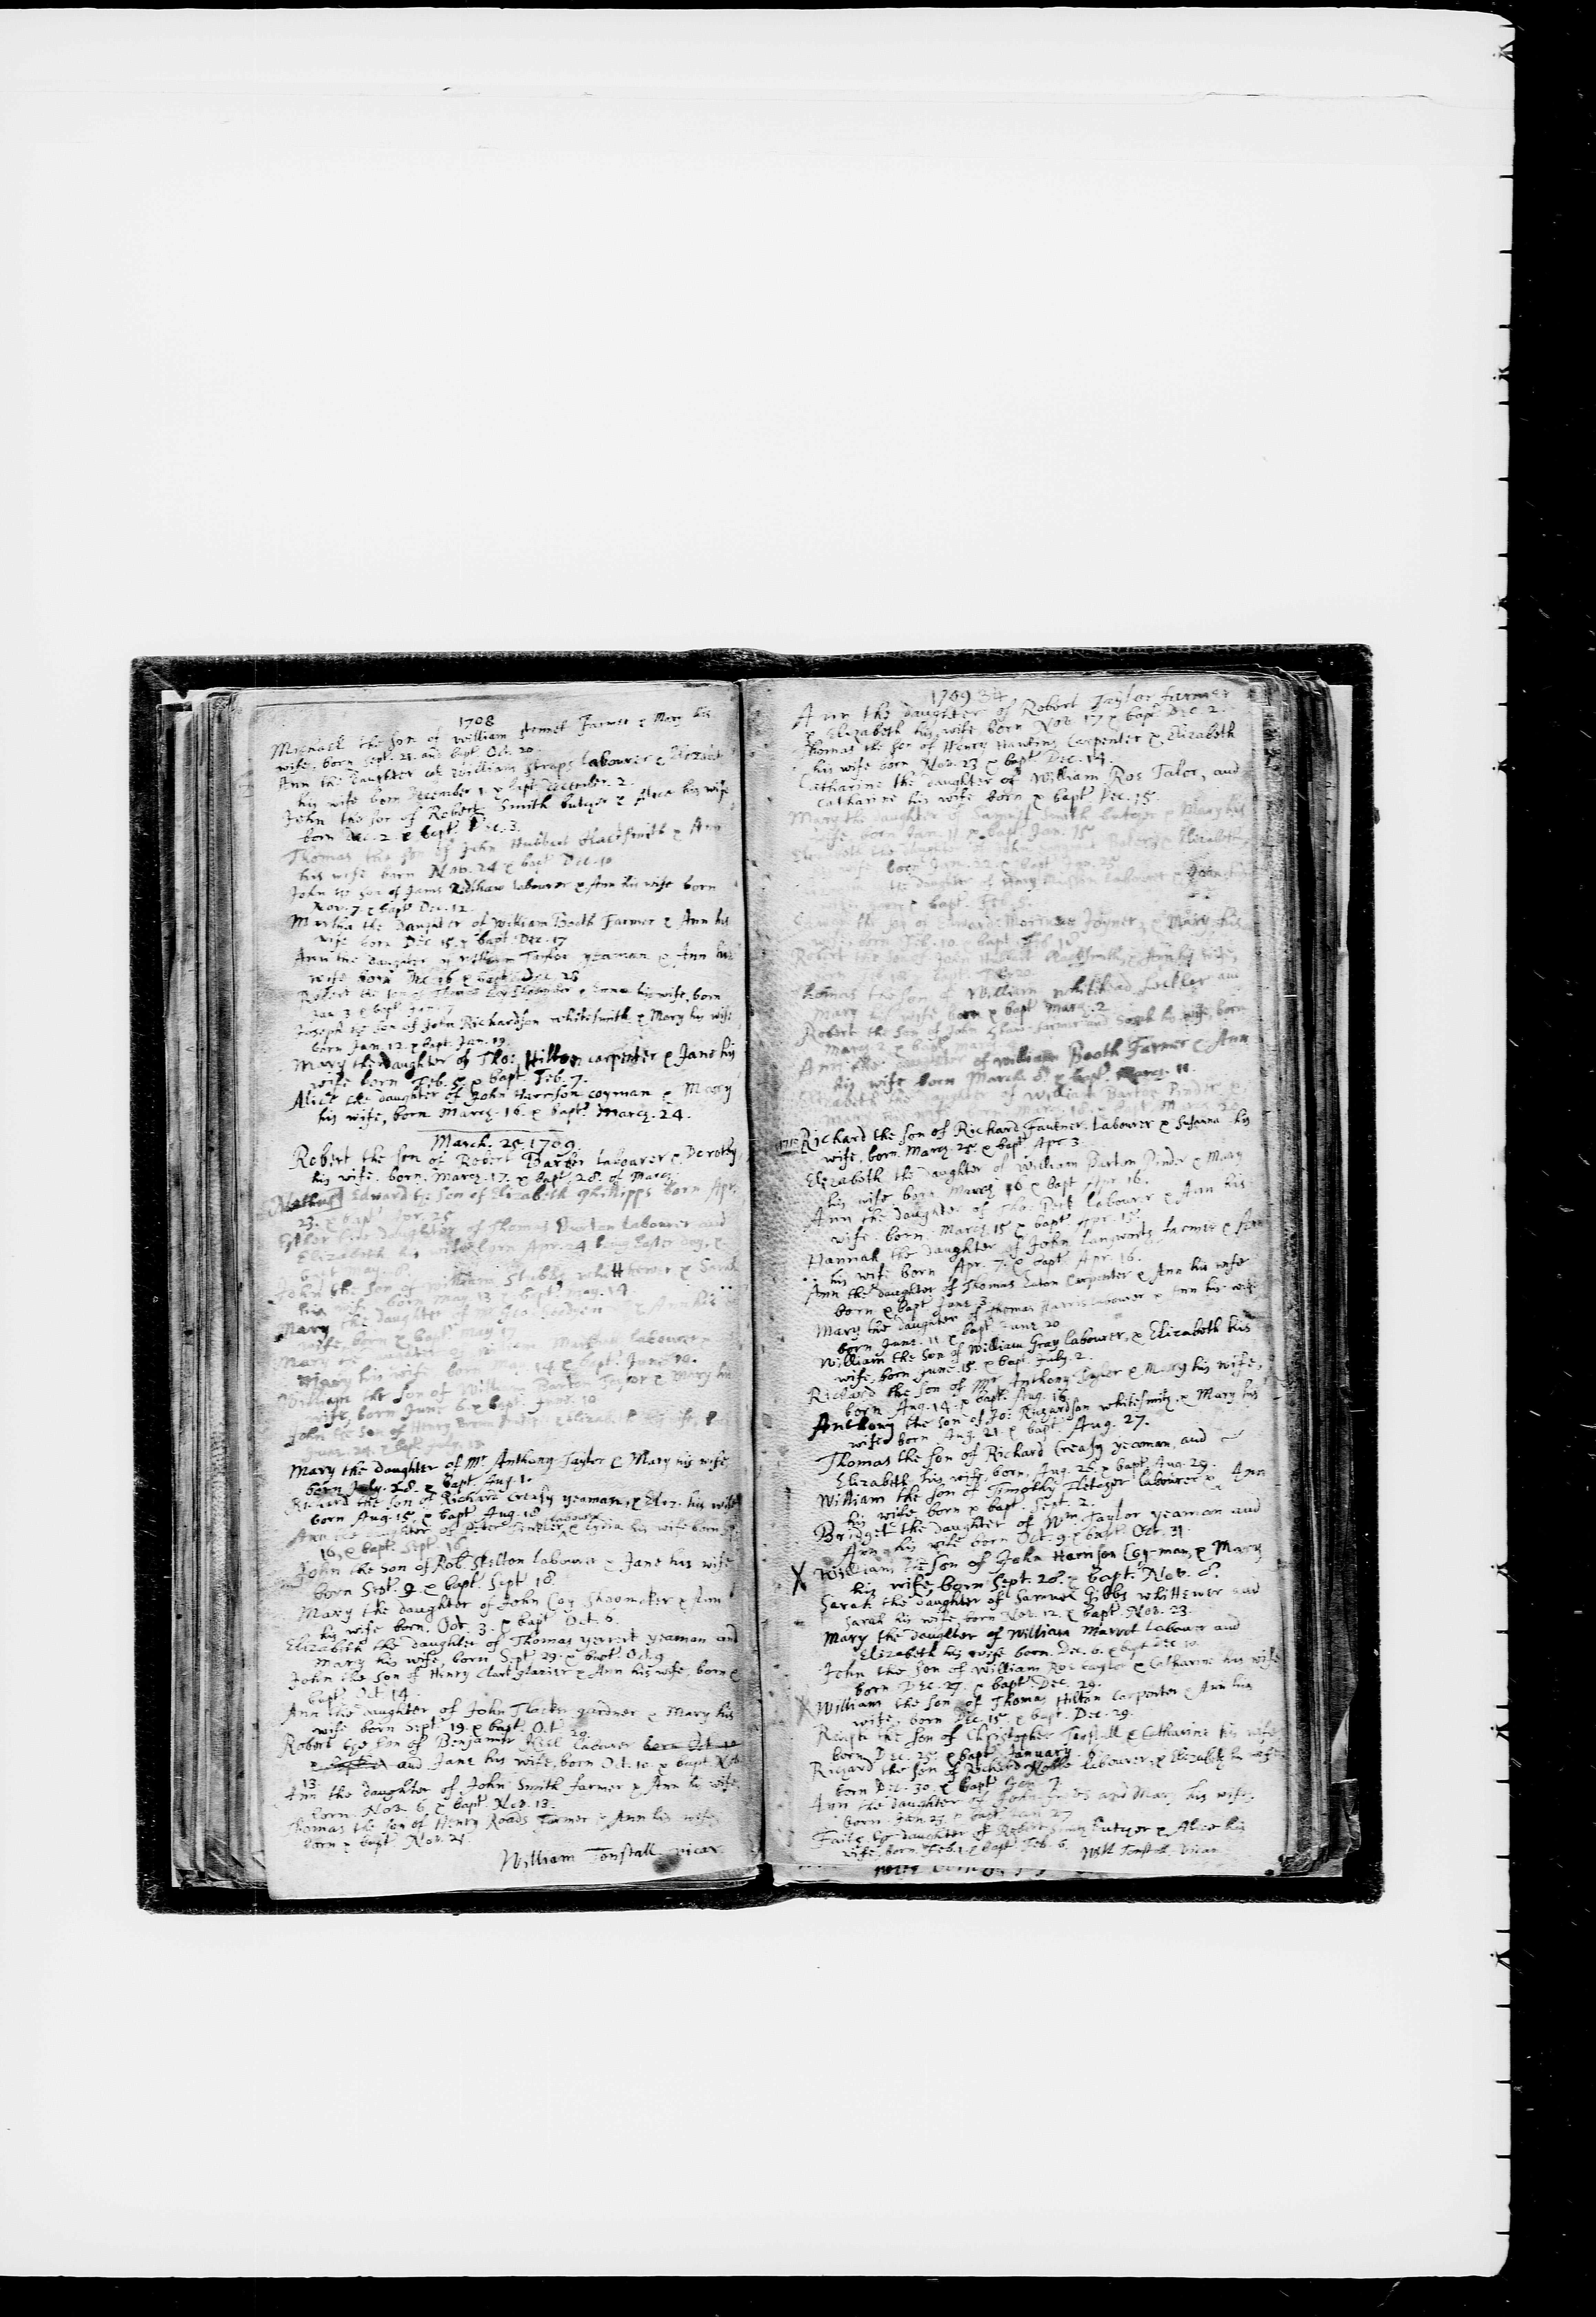 1708
Michaell the son of William Farmer & Mary his
wife, born Sept. 21. and bapt Oct. 20
Ann the daughter of William Straps labourer & Elizabeth
his wife born December 1 & bapt December. 2.
John the son of Robert Smith butcher & Alice his wife
born Dec. 2. & bapt Dec. 3.
Thomas the son of John Hubbart blacksmith & Ann
his wife born Nov. 24 & bapt Dec. 10
John the son of James labourer & Ann his wife born
Nov. 7. & bapt Dec. 12.
Martha the daughter of William Booth Farmer & Ann his
wife born Dec. 15. & bapt Dec. 17
Ann the daughter of William Taylor yeaman & Ann his
wife born Dec. 16 & bapt Dec. 28
Robert the son of Thomas his wife, born
Jan. 3 & bapt Jan. 7
Joseph the son of John Richardson whitesmith & Mary his wife
born Jan. 12. & bapt. Jan. 19.
Mary the daughter of Tho: Hilton carpenter & Jane his
wife born Feb. 5. & bapt Feb. 7.
Alice the daughter of John Harrison coyman & Mary
his wife, born March. 16. & bapt March. 24.
March. 25. 1709
Robert the son of Robert Barker labourer & Dorothy
his wife, born. March. 17. & bapt 28. of March
Nothus Edward the son of Elizabeth Phillipps born Apr.
23. & bapt Apr. 25
Esther the daughter of Thomas Burton labourer and
Elizabeth his wife born Apr. 24 being Easter day, &
bapt May. 8.
John the son of William Stubbs whittawer & Sarah
his wife born May 13 & bapt May. 14.
Mary the daughter of Mr Geo. & Ann his
wife, born & bapt May 17
Mary the daughter of William labourer &
Mary his wife born May. 14 & bapt June 10.
William the son of William Barton Taylor & Mary his
wife, born June 6. & bapt June. 10
John the son of Henry & Elizabeth his wife, born
June. 24. & bapt July. 13
Mary the daughter of Mr Anthony Taylor & Mary his wife
born July. 28. & bapt. Aug. 1.
Richard the son of Richard Creasy yeaman, & Eliz. his wife
born Aug. 15. & bapt Aug. 18
Ann the daughter of Peter labourer & Lydia his wife born
16, & bapt. Sept. 16
John the son of Rob. Skelton labourer & Jane his wife
born Sept. 9. & bapt. Sept 18.
Mary the daughter of John Coy Shoomaker & Ann
his wife born. Oct. 3. & bapt Oct. 6.
Elizabeth the daughter of Thomas yeaman and
Mary his wife, born Sept. 29. & bapt Oct. 9
John the son of Henry Clark glazier & Ann his wife, born &
bapt Oct. 14
Ann the daughter of John gardner & Mary his
wife born Sept 19. & bapt. Oct 20
Robert the son of Benjamin labourer born Oct. 10
& and Jane his wife, born Oct. 10. & bapt. Nov
13.
Ann the daughter of John Smith farmer & Ann his wife
born. Nov. 6. & bapt. Nov. 13.
Thomas the son of Henry Roads Farmer & Ann his wife,
born & bapt. Nov. 21.
William Tonstall. vicar
1709 34
Ann the daughter of Robert Taylor farmer
& Elizabeth his wife, born Nov. 17 & bapt Dec. 2.
Thomas the son of Henry Hawkins Carpenter & Elizabeth
his wife born Nov. 23 & bapt Dec. 14.
Catharine the daughter of William Ros Taler, and
Catharine his wife born & bapt Dec. 15.
Mary the daughter of Samuel Smith butcher & Mary his
wife, born Jan. 11 & bapt Jan. 15
Elizabeth the daughter of John & Elizabeth
wife born Jan. 22. & bapt Jan. 25
the daughter of Henry labourer &
born & bapt. Feb. 5.
the son of Edward Joyner, & Mary his
wife, born Feb. 10. & bapt Feb 18
Robert the son of John Hubbart blacksmith, & Ann his wife,
born Feb. 18. & bapt. Feb. 20
Thomas the son of William Whitehead and
Mary his wife born & bapt March. 2
Robert the son of John Shaw farmer and Sarah his wife, born
March. 2 & bapt March
Ann the daughter of William Booth Farmer & Ann
his wife born March. 8. & bapt. March. 11.
Elizabeth the daughter of William Barton Pinder &
Mary his wife born March. 16. & bapt March
1710 Richard the son of Richard Fautner. Labourer & Susanna his
wife, born. March. 25. & bapt Apr. 3.
Elizabeth the daughter of William Barton Pinder & Mary
his wife born March 16 & bapt Apr. 16.
Ann the daughter of Tho: labourer & Ann his
wife. born. March. 15 & bapt Apr. 15.
Hannah the daughter of John Langworth Farmer & Ann
his wife born Apr. 7. & bapt Apr. 16.
Ann the daughter of Thomas Eaton Carpenter & Ann his wife
born & bapt June 3
Mary the daughter of Thomas Harris labourer & Ann his wife
born June. 11 & bapt June 20
William the son of William Gray labourer, & Elizabeth his
wife, born June. 15. & bapt July. 2.
Richard the son of Mr Anthony Taylor & Mary his wife,
born Aug. 14. & bapt. Aug. 16.
Anthony the son of Jo: Richardson whitesmith & Mary his
wife born Aug. 21. & bapt Aug. 27.
Thomas the son of Richard Creasy yeoman, and
Elizabeth his wife, born. Aug. 26. & bapt Aug. 29.
William the son of Timothy Fletcher labourer & Ann
his wife born & bapt. Sept. 2.
Bridget the daughter of Wm. Taylor yeaman and
Ann his wife born Oct. 9. & bapt. Oct. 31.
X William the son of John Harrison Coy-man, & Mary
his wife, born Sept. 28. & bapt. Nov. 8.
Sarah the daughter of Samuel Gibbs whittewer and
Sarah his wife, born Nov. 12. & bapt. Nov. 23.
Mary the daughter of William Marvot Labourer and
Elizabeth his wife born. Dec. 6. & bapt Dec. 10
John the son of William Ros taylor & Catharine his wife
born Dec. 27. & bapt Dec. 29.
X William the son of Thomas Hilton Carpenter & Ann his
wife, born Dec. 15 & bapt. Dec. 29.
Ralph the son of Christopher & Catharine his wife
born Dec. 25. & bapt January
Richard the son of Richard Noble labourer, & Elizabeth his wife
born Dec. 30. & bapt Jan. 7.
Ann the daughter of John and Mary his wife,
born. Jan. 25 & bapt Jan. 27
Faith the daughter of Robert Smith butcher & Alice his
wife, born. Feb. 1. & bapt Feb. 6.
Will Tonstall. vicar